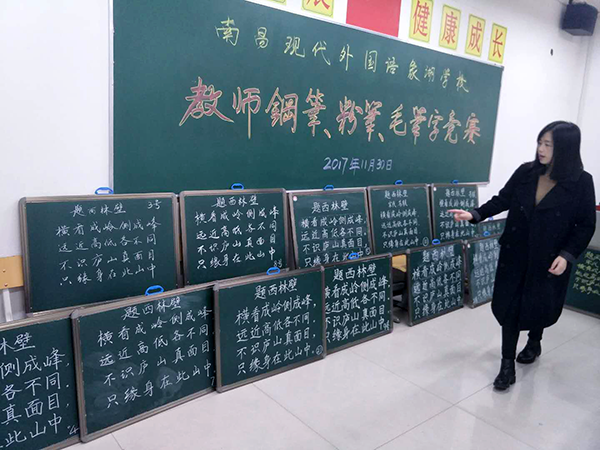 展
健康成长
南昌现代外国语象湖学校
教师鋼筆、粉筆、毛筆字竞赛
2017年11月30日
题西林壁 3号
横看成岭侧成峰
远近高低各不同
不识庐山真面目
只缘身在此山中
题西林壁
横看成岭侧成峰
远近高低各不同
不识庐山真面目
只缘身在此山中
题西林壁
横看成岭侧成峰
远近高低各不同
不识庐山真面目
只缘身在此山中
题西林壁
横看成岭侧成峰
远近高低各不同
不识庐山真面目
只缘身在此山中
题西林壁
横看成岭侧成峰
远近高低各不同
林壁
成峰,
各不同.
真面目,
此山中.
题西林壁
横看成岭侧成峰,
远近高低各不同.
不识庐山真面目,
只缘身在此山中.
题西林壁
横看成岭侧成峰,
远近高低各不同.
不识庐山真面目,
只缘身在此山中.
题西林壁
横看成岭侧成峰,
远近高低各不同.
不识庐山真面目,
只缘身在此山中.